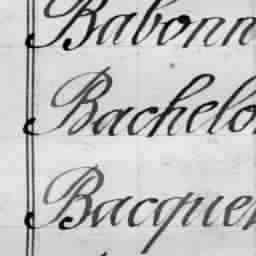 Babonn
Bachelo
Bacque